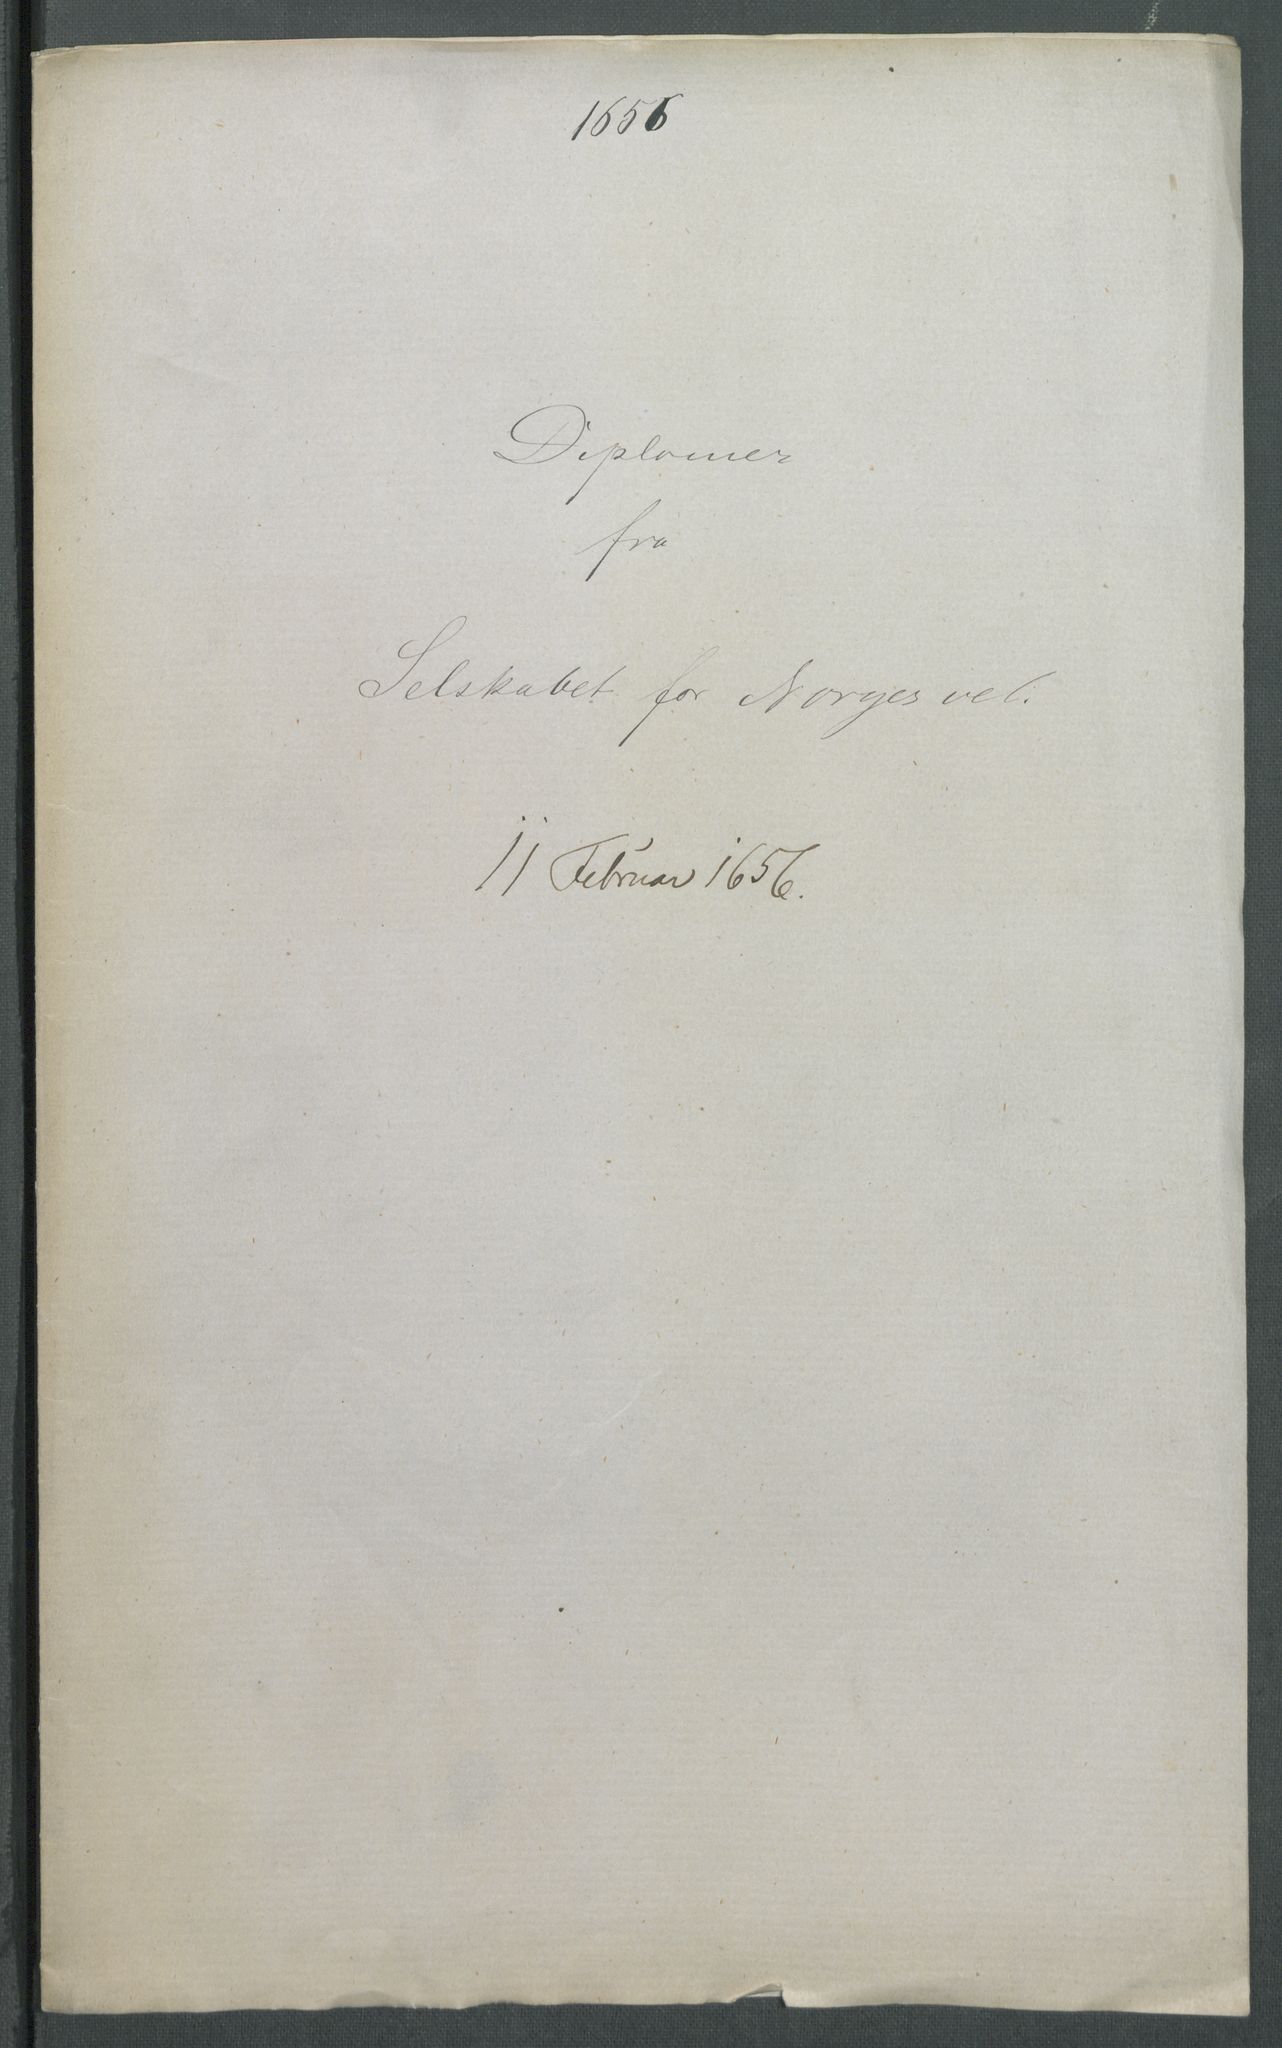 1656
Diplomer
fra
Selskabet for Norges vel.
11 Februar 1656.